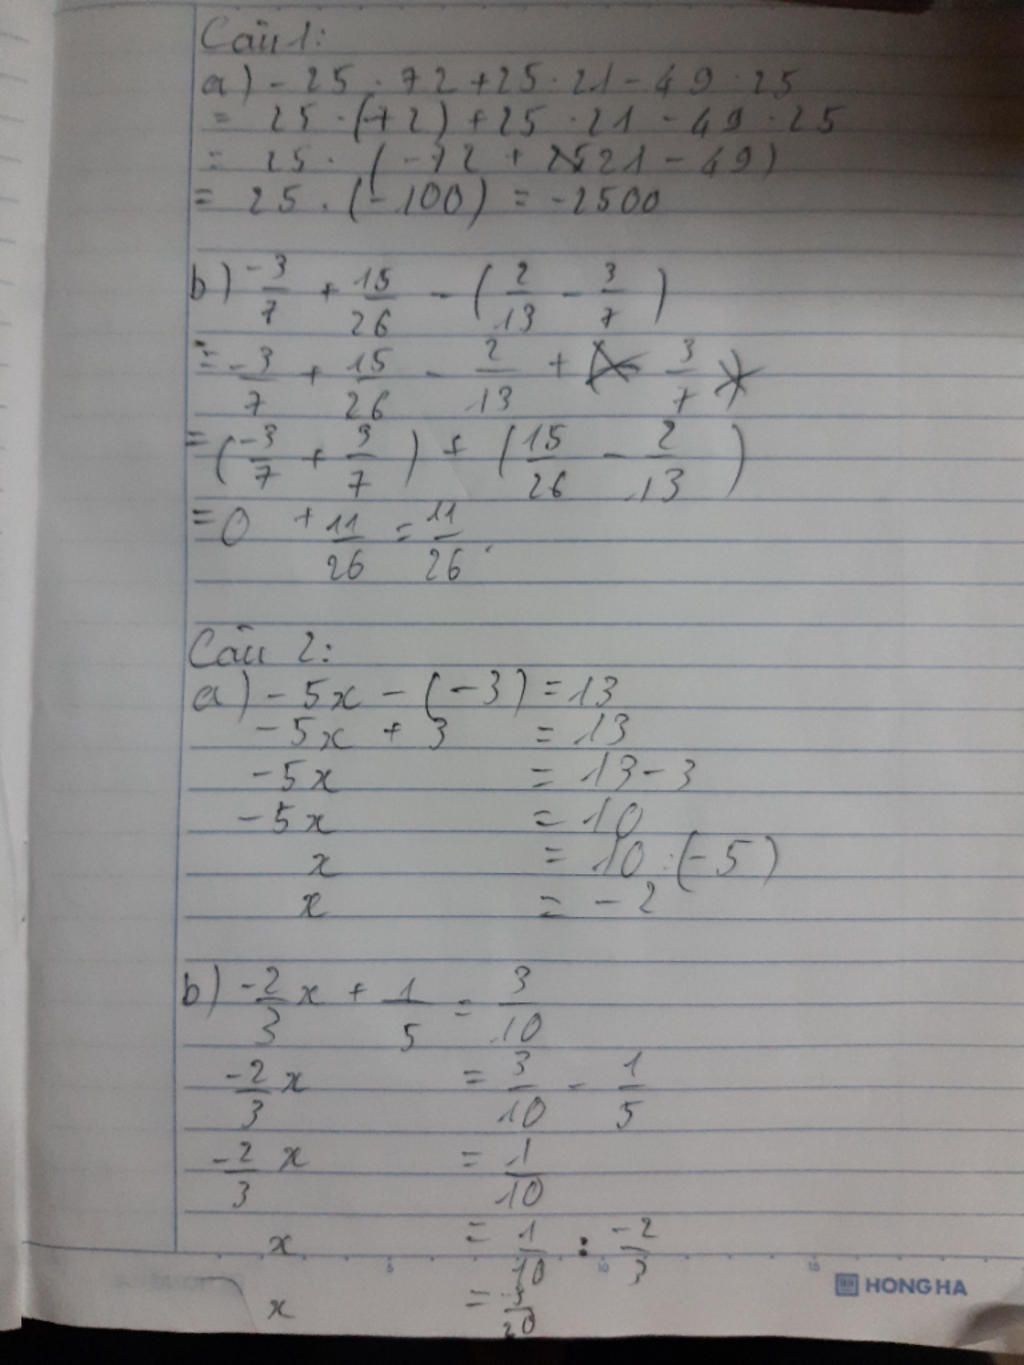 Câu 1:
a) - 25 . 72 + 25 . 21 - 49 . 25
= 25 . (-72) + 25 . 21 - 49 . 25
= 25 . (-72 + 21 - 49)
= 25 . (-100) = -2500
b) -3/7 + 15/26 - (2/13 - 3/7)
= -3/7 + 15/26 - 2/13 + 3/7
= (-3/7 + 3/7) + (15/26 - 2/13)
= 0 + 11/26 = 11/26.
Câu 2:
a) - 5x - (-3) = 13
-5x + 3 = 13
-5x = 13 - 3
-5x = 10
x = 10 : (-5)
x = -2
b) -2/3 x + 1/5 = 3/10
-2/3 x = 3/10 - 1/5
-2/3 x = 1/10
x = 1/10 : -2/3
5 10 15
HONG HA
x = 3/20